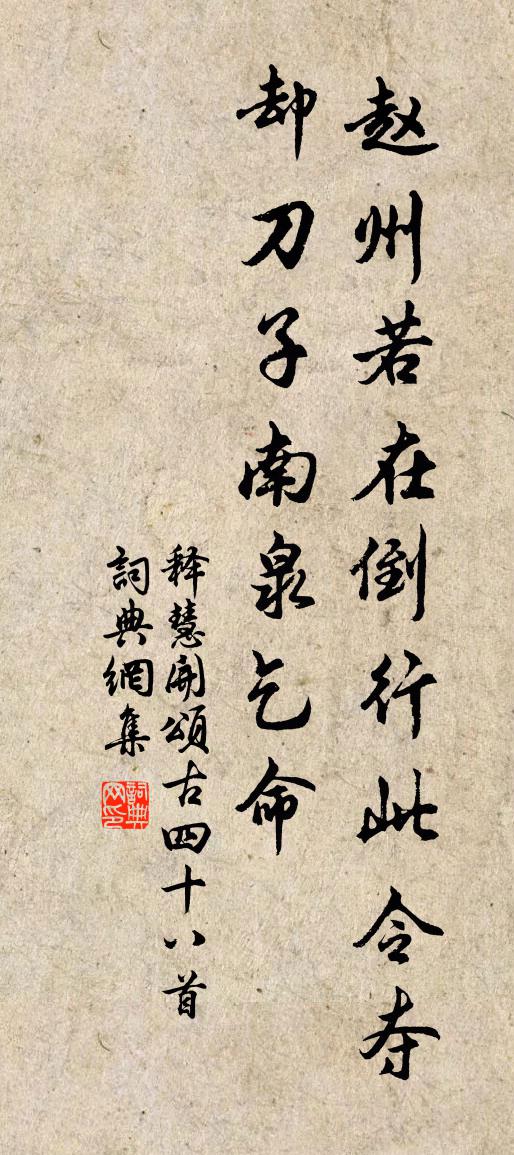 赵州若在倒行此令夺
却刀子南泉乞命
释慧開頌古四十八首
詞典網集
詞典网印